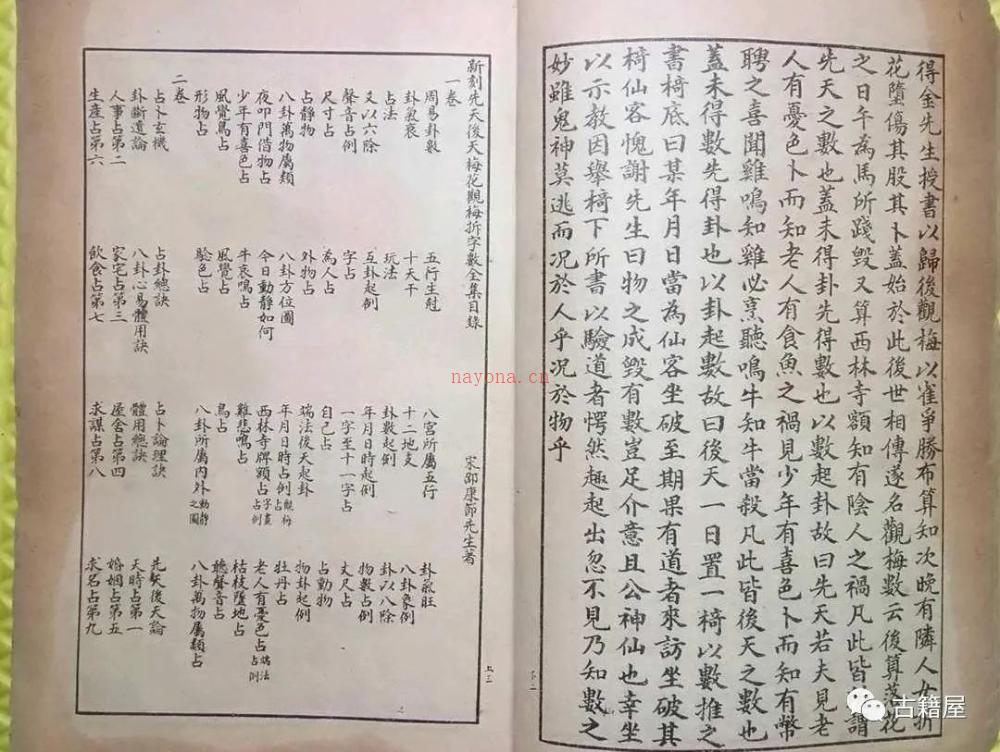 得金先生授書以歸後觀梅以雀爭勝布算知次晚有隣人女折
花墮傷其股其卜蓋始於此後世相傳遂名觀梅數云後算落花
之日午為馬所踐毀又算西林寺額知有陰人之禍凡此皆謂
先天之數也蓋未得卦先得數也以數起卦故曰先天若夫見老
人有憂色卜而知老人有食魚之禍見少年有喜色卜而知有幣
聘之喜聞雞鳴知雞必烹聽鳴牛知牛當殺凡此皆後天之數也
蓋未得數先得卦也以卦起數故曰後天一日置一椅以數推之
書椅底曰某年月日當為仙客坐破至期果有道者來訪坐破其
椅仙客愧謝先生曰物之成毀有數豈足介意且公神仙也幸坐
以示教因舉椅下所書以驗道者愕然趣起出忽不見乃知數之
妙雖鬼神莫逃而況於人乎況於物乎
卜二
新刻先天後天梅花觀梅折字數全集目錄
宋邵康節先生著
一卷
周易卦數 五行生尅 八宮所屬五行 卦氣旺
卦氣衰 十天干 十二地支 八卦象例
占法 玩法 卦數起例 卦以八除
又以六除 互卦起例 年月日時起例 物數占例
聲音占例 字占 一字至十一字占 丈尺占
尺寸占 為人占 自己占 占動物
占靜物 外物占 端法後天起卦 物卦起例
八卦萬物屬類 八卦方位圖 年月日時占例 觀梅占例 牡丹占
夜叩門借物占 今日動靜如何 西林寺牌額占 字畫占例 老人有憂色占 端法占例
少年有喜色占 牛哀鳴占 雞悲鳴占 枯枝墮地占
風覺鳥占 風覺占 鳥占 聽聲音占
形物占 驗色占 八卦所屬內外 動靜之圖 八卦萬物屬類占
二卷
占卜玄機 占卦總訣 占卜論理訣 先天後天論
卦斷遺論 八卦心易體用訣 體用總訣 天時占第一
人事占第二 家宅占第三 屋舍占第四 婚姻占第五
生產占第六 飲食占第七 求謀占第八 求名占第九
上三
nayona.cn
古籍屋